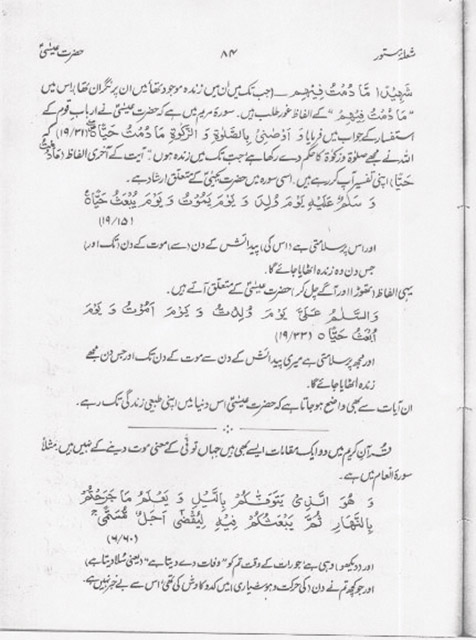 شعلۂ مستور ۸۴ حضرت عیسیٰؑ
شَهِيْدًا مَّا دُمْتُ فِيْهِمْ ـــ (جب تک میں اُن میں زندہ موجود تھا میں ان پر نگران تھا) اس میں
”مَا دُمْتُ فِيْهِمْ“ کے الفاظ غور طلب ہیں۔ سورۂ مریم میں ہے کہ حضرت عیسیٰؑ نے ارباب قوم کے
استفسار کے جواب میں فرمایا وَ اَوْصٰنِيْ بِالصَّلٰوةِ وَ الزَّكٰوةِ مَا دُمْتُ حَيًّا (۱۹/۳۱) کہ
اللہ نے مجھے صلوٰۃ و زکوٰۃ کا حکم دے رکھا ہے جب تک میں زندہ ہوں“۔ آیت کے آخری الفاظ (مَا دُمْتُ
حَيًّا) اپنی تفسیر آپ کر رہے ہیں۔ اسی سورہ میں حضرت یحییٰؑ کے متعلق ارشاد ہے۔
وَ سَلٰمٌ عَلَيْهِ يَوْمَ وُلِدَ وَ يَوْمَ يَمُوْتُ وَ يَوْمَ يُبْعَثُ حَيًّا ۝
(۱۹/۱۵)
اور اس پر سلامتی ہے (اس کی) پیدائش کے دن (سے) موت کے دن (تک اور)
جس دن وہ زندہ اٹھایا جائے گا۔
یہی الفاظ (تھوڑا اور آگے چل کر) حضرت عیسیٰؑ کے متعلق آتے ہیں۔
وَالسَّلٰمُ عَلَيَّ يَوْمَ وُلِدْتُّ وَ يَوْمَ اَمُوْتُ وَ يَوْمَ
اُبْعَثُ حَيًّا ۝ (۱۹/۳۳)
اور مجھ پر سلامتی ہے میری پیدائش کے دن سے موت کے دن تک اور جس دن مجھے
زندہ اٹھایا جائے گا۔
ان آیات سے بھی واضح ہو جاتا ہے کہ حضرت عیسیٰؑ اس دنیا میں اپنی طبیعی زندگی تک رہے۔
قرآن کریم میں دو ایک مقامات ایسے بھی ہیں جہاں توفّی کے معنی موت دینے کے نہیں ہیں مثلاً
سورۂ انعام میں ہے۔
وَ هُوَ الَّذِيْ يَتَوَفّٰىكُمْ بِالَّيْلِ وَ يَعْلَمُ مَا جَرَحْتُمْ
بِالنَّهَارِ ثُمَّ يَبْعَثُكُمْ فِيْهِ لِيُقْضٰٓى اَجَلٌ مُّسَمًّى ۚ
(۶/۶۰)
اور (دیکھو) وہی ہے جو رات کے وقت تم کو ”وفات دے دیتا ہے“ (یعنی سُلا دیتا ہے)
اور جو کچھ تم نے دن (کی حرکت و ہوشیاری) میں کدو کاوش کی تھی اس سے بے خبر نہیں ہے۔